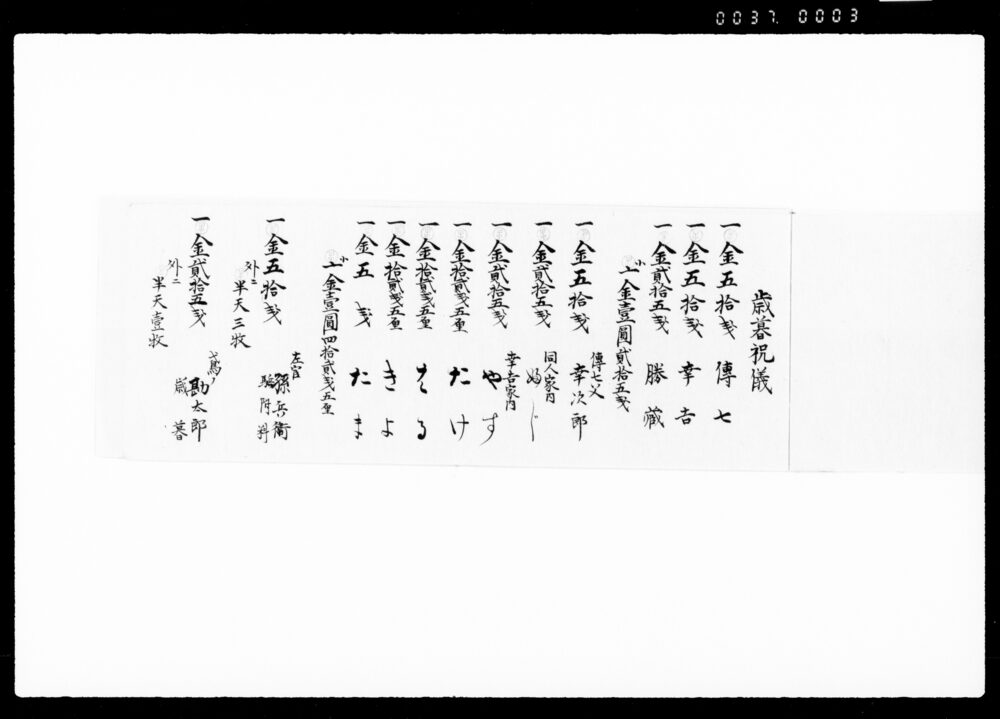 0037. 0003
歳暮祝儀
一金五拾戔 傳七
一金五拾戔 幸吉
一金貳拾五戔 勝藏
小
〆金壹圓貳拾五戔
傳七父
一金五拾戔 幸次郎
同人家内
一金貳拾五戔 ふじ
幸吉家内
一金貳拾五戔 やす
一金拾貳戔五厘 たけ
一金拾貳戔五厘 はる
一金拾貳戔五厘 きよ
一金五戔 たま
小
〆金壹圓四拾貳戔五厘
左官
一金五拾戔 孫兵衛
外ニ
半天三枚
鳶ノ
一金貳拾五戔 勘太郎
歳暮
外ニ
半天壹枚